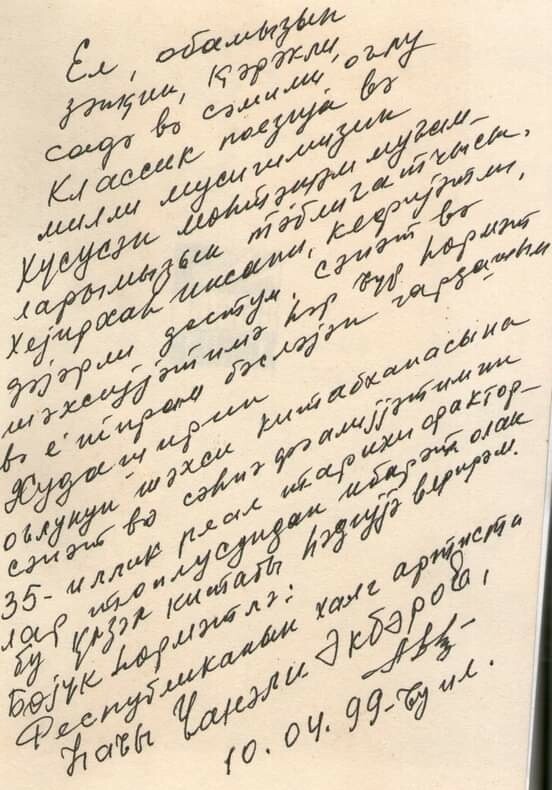 Ел, обамызын
зәнҝин, ҝәрәкли,
садә вә сәмими оғлу
Классик поезија вә
милли мусигимизин
Хүсусән мөһтәшәм муғам-
ларымызын тәблиғатчысы,
Хејирхаһ инсаны, кефијјәтли,
дәјәрли достум, сәнәт вә
шәхсијјәтимә һәр ҹүр һөрмәт
вә е'тирам бәсләјән гардашым
Худаширин
оғлунун шәхси китабханасына
сәнәт вә сәһнә фәалијјәтимин
35-иллик реал тарихи фактор-
лар топлусундан ибарәт олан
бу ҝөзәл китабы һәдијјә верирәм.
Бөјүк һөрмәтлә:
Республиканын халг артисти
Һаҹы Ҹанәли Әкбәров,
10.04.99-ҹу ил.